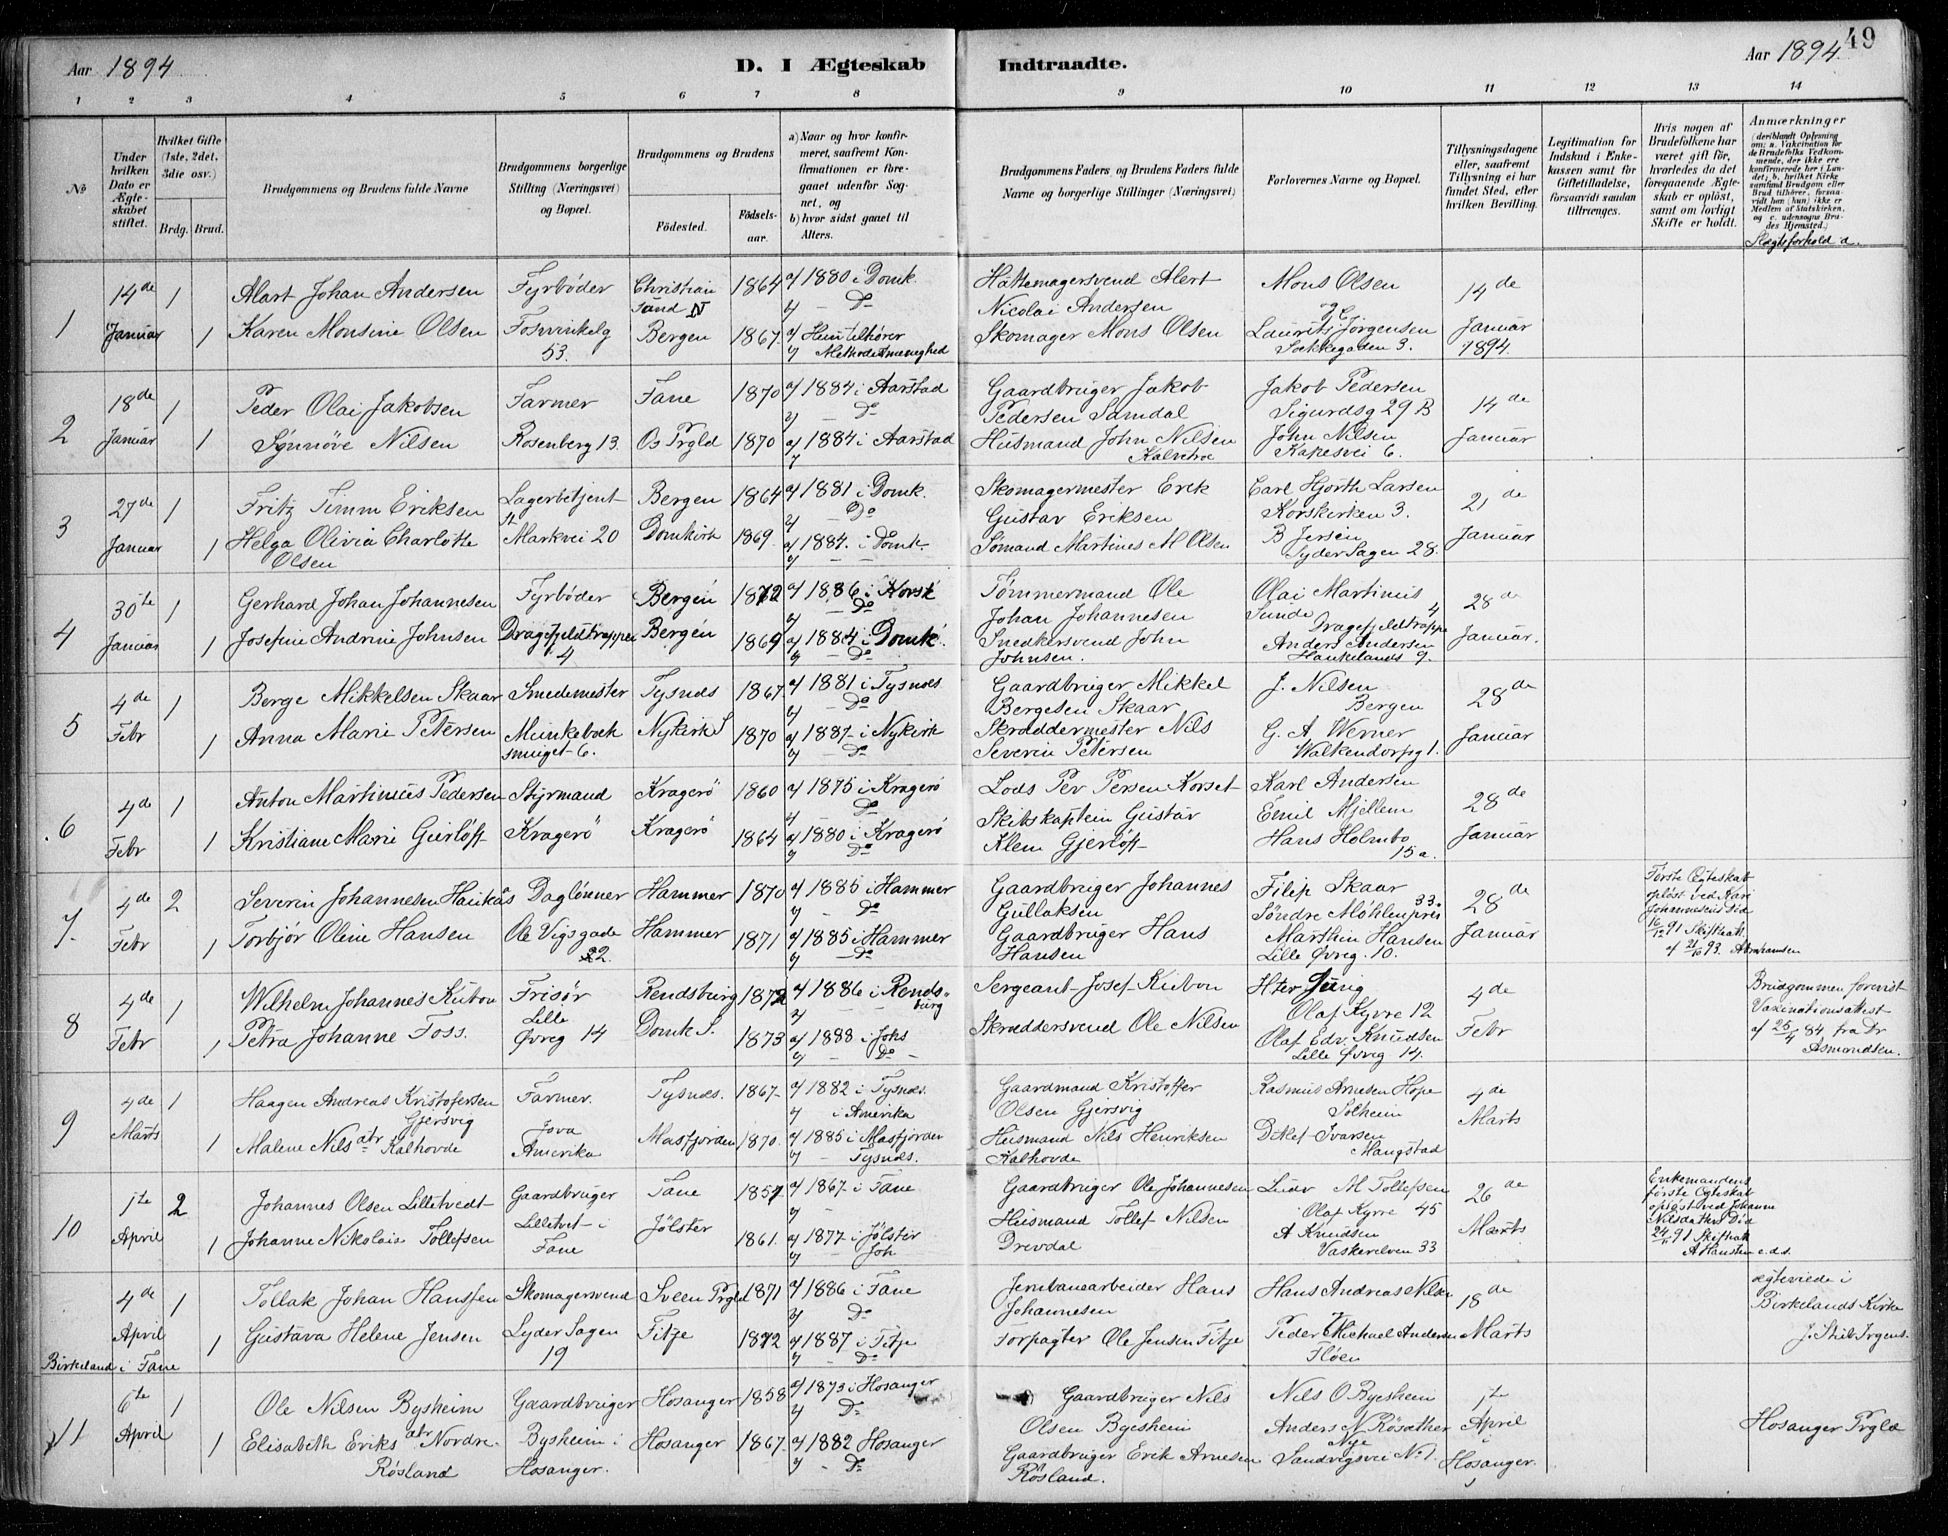 49
Aar 1894
D. I Ægteskab Indtraadte.
Aar 1894
1 2 3 4 5 6 7 8 9 10 11 12 13 14
№
Under hvilken Dato er Ægteskabet stiftet.
Hvilket Gifte (1ste, 2det, 3die osv.)
Brdg. Brud.
Brudgommens og Brudens fulde Navne
Brudgommens borgerlige Stilling (Næringsvei) og Bopæl.
Brudgommens og Brudens
Fødested.
Fødselsaar.
a) Naar og hvor konfirmeret, saafremt Konfirmationen er foregaaet udenfor Sognet, og
b) hvor sidst gaaet til Alters.
Brudgommens Faders og Brudens Faders fulde Navne og borgerlige Stillinger (Næringsvei)
Forlovernes Navne og Bopæl.
Tillysningsdagene eller, saafremt Tillysning ei har fundet Sted, efter hvilken Bevilling.
Legitimation for Indskud i Enkekassen samt for Giftetilladelse, forsaavidt saadan tiltrænges.
Hvis nogen af Brudefolkene har været gift før, hvorledes da det foregaaende Ægteskab er opløst, samt om lovligt Skifte er holdt.
Anmærkninger
(deriblandt Oplysning om: a. Vakcination for de Brudefolks Vedkommende, der ikke ere konfirmerede her i Landet; b. hvilket Kirkesamfund Brudgom eller Brud tilhører, forsaavidt han (hun) ikke er Medlem af Statskirken, og c. udensogns Brudes Hjemsted.)
Slægtsforhold d.
1
14de Januar
1
1
Alart Johan Andersen
Karen Monsine Olsen
Fyrbøder
Fosvinkelg
53.
Christiansund N
Bergen
1864
1867
a) 1880 i Domk.
b) – Do
a) Hun tilhører
b) Methodistmenighed
Hattemagersvend Alert
Nicolai Andersen
Skomager Mons Olsen
Mons Olsen
og
Laurits C Jørgensen
Sækkegaden 3.
14de
Januar
1894.
2
18de Januar
1
1
Peder Olai Jakobsen
Synnøve Nilsen
Farmer
Rosenberg 13.
Fane
Os Prgld
1870
1870
a) 1884 i Aarstad
b) – Do
a) 1884 i Aarstad
Gaardbruger Jakob
Pedersen Samdal
Husmand John Nilsen
Kalvetræ
Jakob Pedersen
Sigurdsg 29 B
John Nilsen
Kapesvei 6.
14de
Januar
3
27de Januar
1
1
Fritz Timm Eriksen
Helga Olivia Charlotte
Olsen
Lagerbetjent
St
Markvei 20
Bergen
Domkirk
1864
1869.
a) 1881 i Domk.
b) Do
a) 1884. i Domk.
b) – –
Skomagermester Erik
Gustav Eriksen
Sømand Martines M Olsen
Carl Hjorth Larsen
Korskirken 3.
B Jersin
Lyder Sagen 28.
21de
Januar
4
30te Januar
1
1
Gerhard Johan Johannesen
Josefine Andrine Johnsen
Fyrbøder
Dragefjeldstrappen
4
Bergen
Bergen
1872
1869
a) 1886 i Korsk
b) – Do
a) 1884 i Domk.
b) – Do
Tømmermand Ole
Johan Johannesen
Snedkersvend John
Johnsen.
Olai Martinus
Sunde 4
Dragefjeldtrappe
Anders Andersen
Haukelands 9.
28de
Januar.
5
4de Febr
1
1
Berge Mikkelsen Skaar
Anna Marie Petersen
Smedemester
Munkebæk
smuget 6.
Tysnes
Nykirk S
1867
1870
a) 1881 i Tysnes
b) – Do
a) 1887 i Nykirk
b) Do
Gaardbruger Mikkel
Bergesen Skaar
Skræddermester Nils
Severin Petersen
J. Nilsen
Bergen
G. A Werner
Walkendorfsg 1.
28de
Januar
6
4de Febr
1
1
Anton Martinius Pedersen
Kristiane Marie Gierløff
Styrmand
Kragerö
Kragerö
Kragerö
1860
1864
a) 1875 i Kragerö
b) Do
a) 1880 i Kragerö
b) Do
Lods Per Persen Korset
Skibskaptein Gustav
Klem Gjerløff
Karl Andersen
Emil Mjellem
Hans Holmbo
15 a.
28de
Januar
7.
4de Febr
2
1
Severin Johannesen Haukås
Torbjør Oline Hansen
Daglønner
Ole Vigsgade
22.
Hammer
Hammer
1870
1871
a) 1885 i Hammer
b) – Do
a) 1885 i Hammer
b) – Do
Gaardbruger Johannes
Gullaksen
Gaardbruger Hans
Hansen
Filip Skaar
33.
Søndre Møhlenpris
Marthin Hansen
Lille Øvreg. 10.
28de
Januar
Første Ægteskab
opløst ved Kari
Johannesens Død
16/12 91 Skifteatt.
af 21/6 93. Abrahamsen
8
4de Febr
1
1
Wilhelm Johannes Kubon
Petra Johanne Foss.
Frisør
Lille
Øvreg 14
Rendsburg
Domk S.
1872
1873
a) 1886 i Rendsburg
b) –
a) 1888 i Johs
b) – Do –
Sergeant Josef Kubon
Skræddersvend Ole Nilsen
Olaf Kyrre 12
Olaf Edv. Knudsen
Lille Øvreg 14.
4de
Febr
Brudgommen forevist
Vaxinationsattest
af 25/4 84 fra Dr
Asmundsen.
9
4de Marts
1
1
Haagen Andreas Kristofersen
Gjersvig
Malene Nils dtr Kalhovde
Farmer.
Jova
Amerika
Tysnes.
Masfjorden
1867
1870.
a) 1882 i Tysnes.
b) i Amerika
a) 1885 i Masfjorden
b) – Tysnes.
Gaardmand Kristoffer
Olsen Gjersvig
Husmand Nils Henriksen
Kalhovde
Rasmus Arnesen Hope
Solheim
Ditlef Ivarsen
Haugstad
4de
Marts
10
1te April
2
1
Johannes Olsen Lilletvedt
Johanne Nikolaia Tollefsen
Gaardbruger
Lilletvet i
Fane
Fane
Jølster
1851
1861.
a) 1867 i Fane
b) –
a) 1877 i Jølster
b) – Joh
Gaardbruger Ole Johannesen
Husmand Tollef Nilsen
Drevdal
Ludv M Tollefsen
Olaf Kyrre 45
A Knudsen
Vaskerelven 33
26de
Marts
Enkemandens
første Ægteskab
opløst ved Johanne
Nilsdatters Død
24/11 91 Skifteatt
A Hansten c.d.s.
4de April
1
1
Tollak Johan Hanssen
Gustava Helene Jensen
Birkeland i Fane
Skomagersvend
Lyder Sagen
19
Sveen Prgld
Fitje
1871
1872
a) 1886 i Fane
b) Do
a) 1887 i Fitje
b) – Do
Jernbanearbeider Hans
Johannesen
Forpagter Ole Jensen Fitje
Hans Andreas Nilsen
Peder Michael Andersen
Fløen
18de
Marts
ægteviede i
Birkelands Kirke
J. Stub Irgens.
11
6te April
1
1
Ole Nilsen Bysheim
Elisabeth Eriks dtr Nordre
Røsland
Gaardbruger
Bysheim i
Hosanger.
Hosanger
Hosanger
1858
1867
a) 1873 i Hosanger
b) Do
a) 1882 Hosanger
b) – Do
Gaardbruger Nils
Olsen Byesheim
Gaardbruger Erik Arnesen
Røsland.
Nils O Byesheim
Anders N Røsæther
Nye
Sandvigsvei No 1.
1te
April
i
Hosanger
Hosanger Prgld